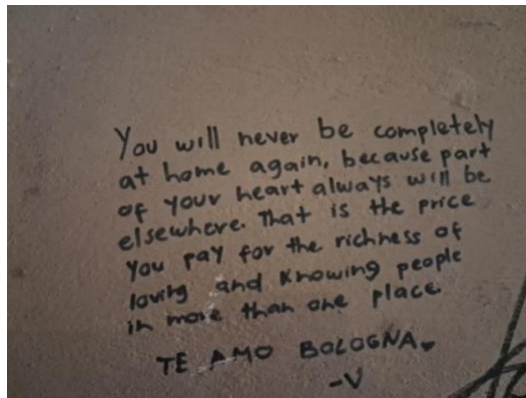 You will never be completely
at home again, because part
of your heart always will be
elsewhere. That is the price
you pay for the richness of
loving and knowing people
in more than one place.
TE AMO BOLOGNA♥
-V